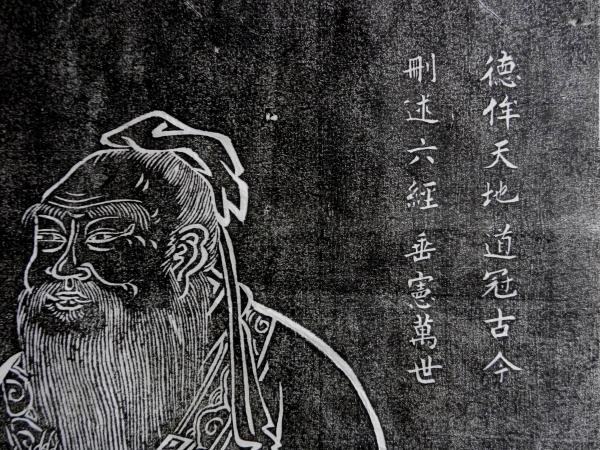 德侔天地 道冠古今
刪述六經 垂憲萬世